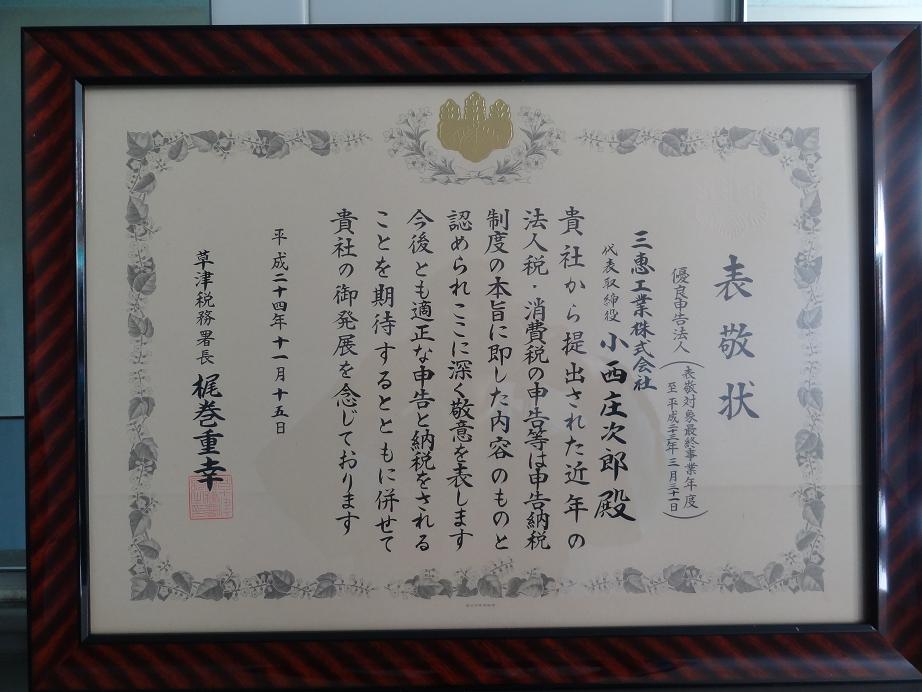 表敬状
優良申告法人
（表敬対象最終事業年度
至平成二十三年三月三十一日）
三恵工業株式会社
代表取締役 小西庄次郎殿
貴社から提出された近年の
法人税・消費税の申告等は申告納税
制度の本旨に即した内容のものと
認められここに深く敬意を表します
今後とも適正な申告と納税をされる
ことを期待するとともに併せて
貴社の御発展を念じております
平成二十四年十一月十五日
草津税務署長 梶巻重幸